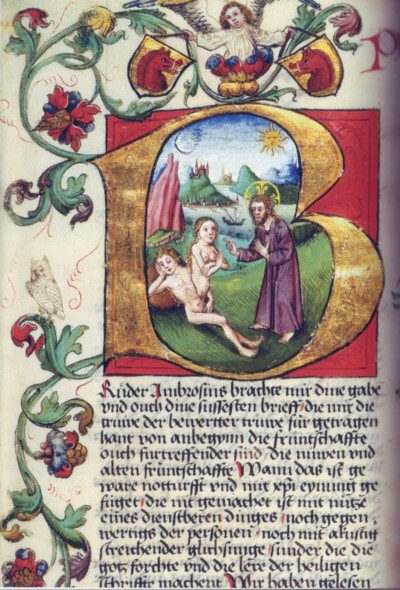 BRůder Ambrosius brachte mir dine gabe
vnd ouch dine süssesten brieff / die mir die
trüwe der bewertter trüwe für getragen
hant von anbegynn die früntschaffte
ouch furtreffender sind / die nüwen vnd
alten früntschafft / Wann das ist ge
ware notturfft vnd mit xpi eynung ge
füget / die nit gemachet ist mit nütze
eines dienstberen dinges / noch gegen
wertigs der personen / noch mit akustig
streichender glichsunge / sunder die die
gotz forchte vnd die lere der heiligen
schrifft machent / Wir haben gelesen